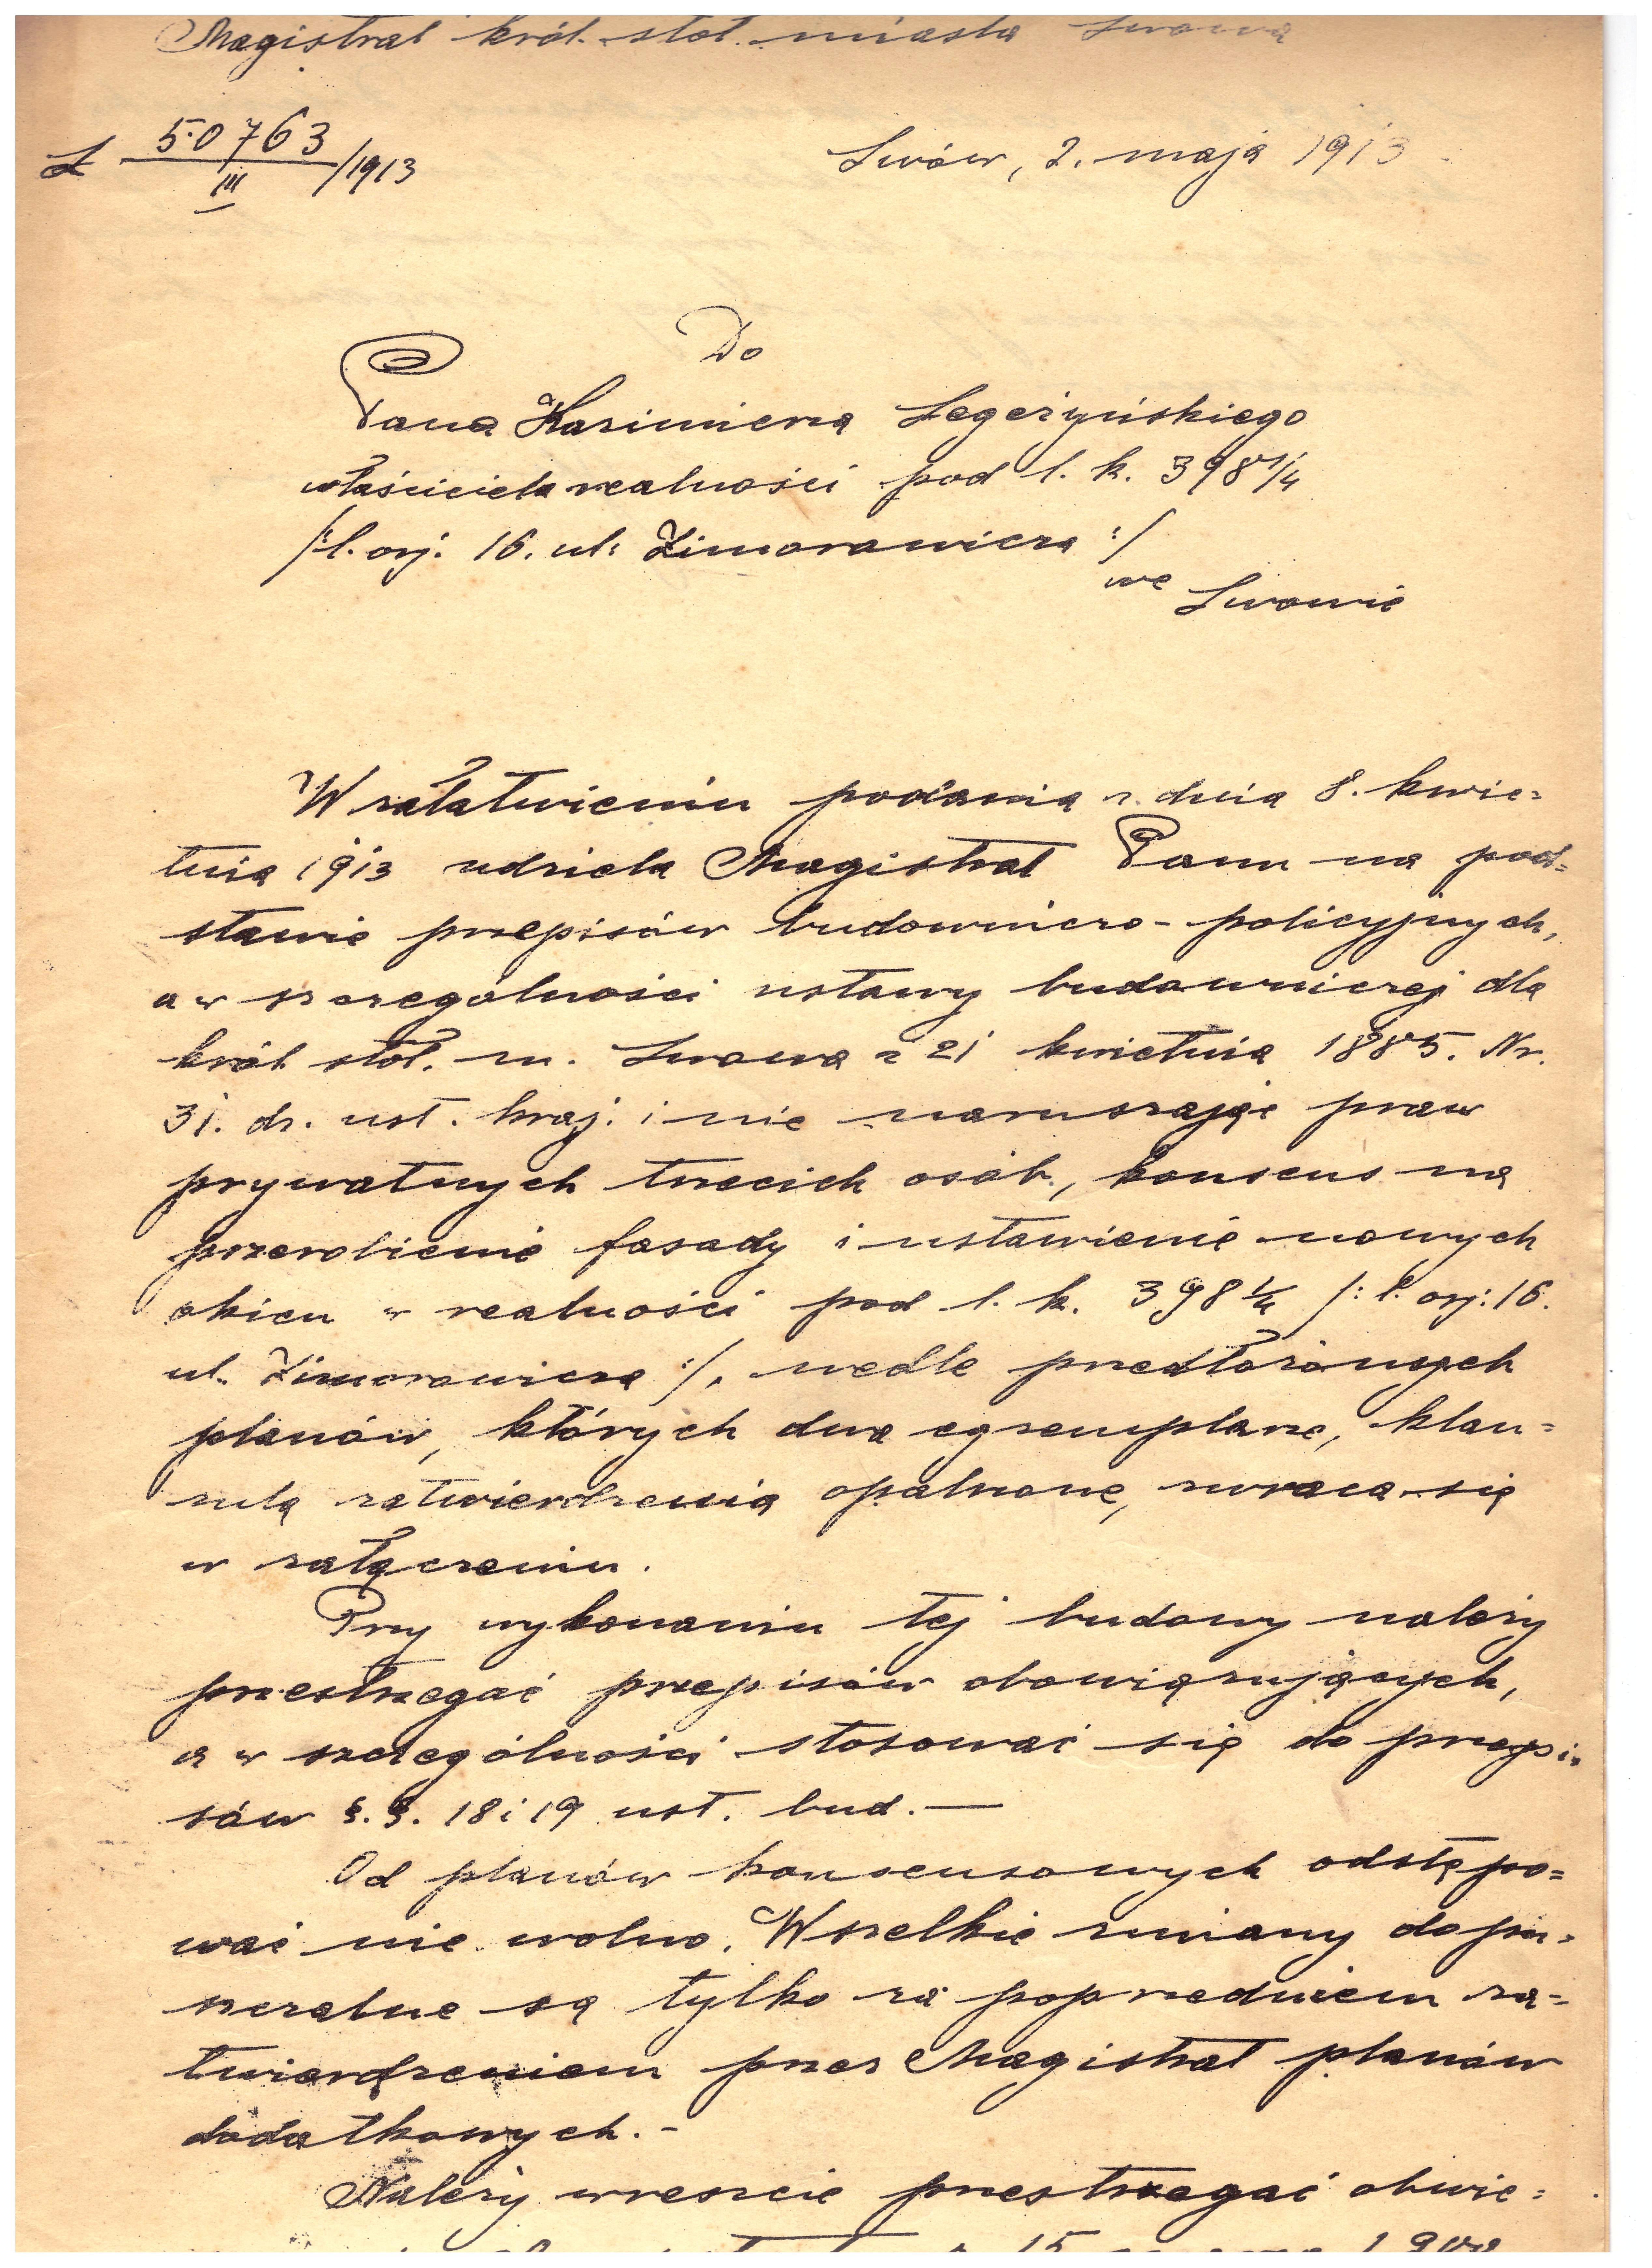 Magistrat król. stoł. miasta Lwowa
L 50763/III /1913
Lwów, 2. maja 1913
Do
Pana Kazimierza Legeżyńskiego
właściciela realności pod l. k. 398 1/4
/: l. orj. 16. ul. Zimorowicza :/
we Lwowie
W załatwieniu podania z dnia 8. kwie=
tnia 1913 udziela Magistrat Panu na pod=
stawie przepisów budowniczo-policyjnych,
a w szczególności ustawy budowniczej dla
król. stoł. m. Lwowa z 21 kwietnia 1885. Nr.
31. dz. ust. kraj. i nie naruszając praw
prywatnych trzecich osób, konsens na
przerobienie fasady i ustawienie nowych
okien w realności pod l. k. 398 1/4 /: l. orj: 16.
ul. Zimorowicza :/, wedle przedłożonych
planów, których dwa egzemplarze, klau=
zulą zatwierdzenia opatrzone, zwraca się
w załączeniu.
Przy wykonaniu tej budowy należy
przestrzegać przepisów obowiązujących,
a w szczególności stosować się do przepi=
sów §. §. 18 i 19 ust. bud. —
Od planów konsensowych odstępo=
wać nie wolno. Wszelkie zmiany dopu=
szczalne są tylko za poprzedniem za=
twierdzeniem przez Magistrat planów
dodatkowych. -
Należy wreszcie przestrzegać obwie=
15